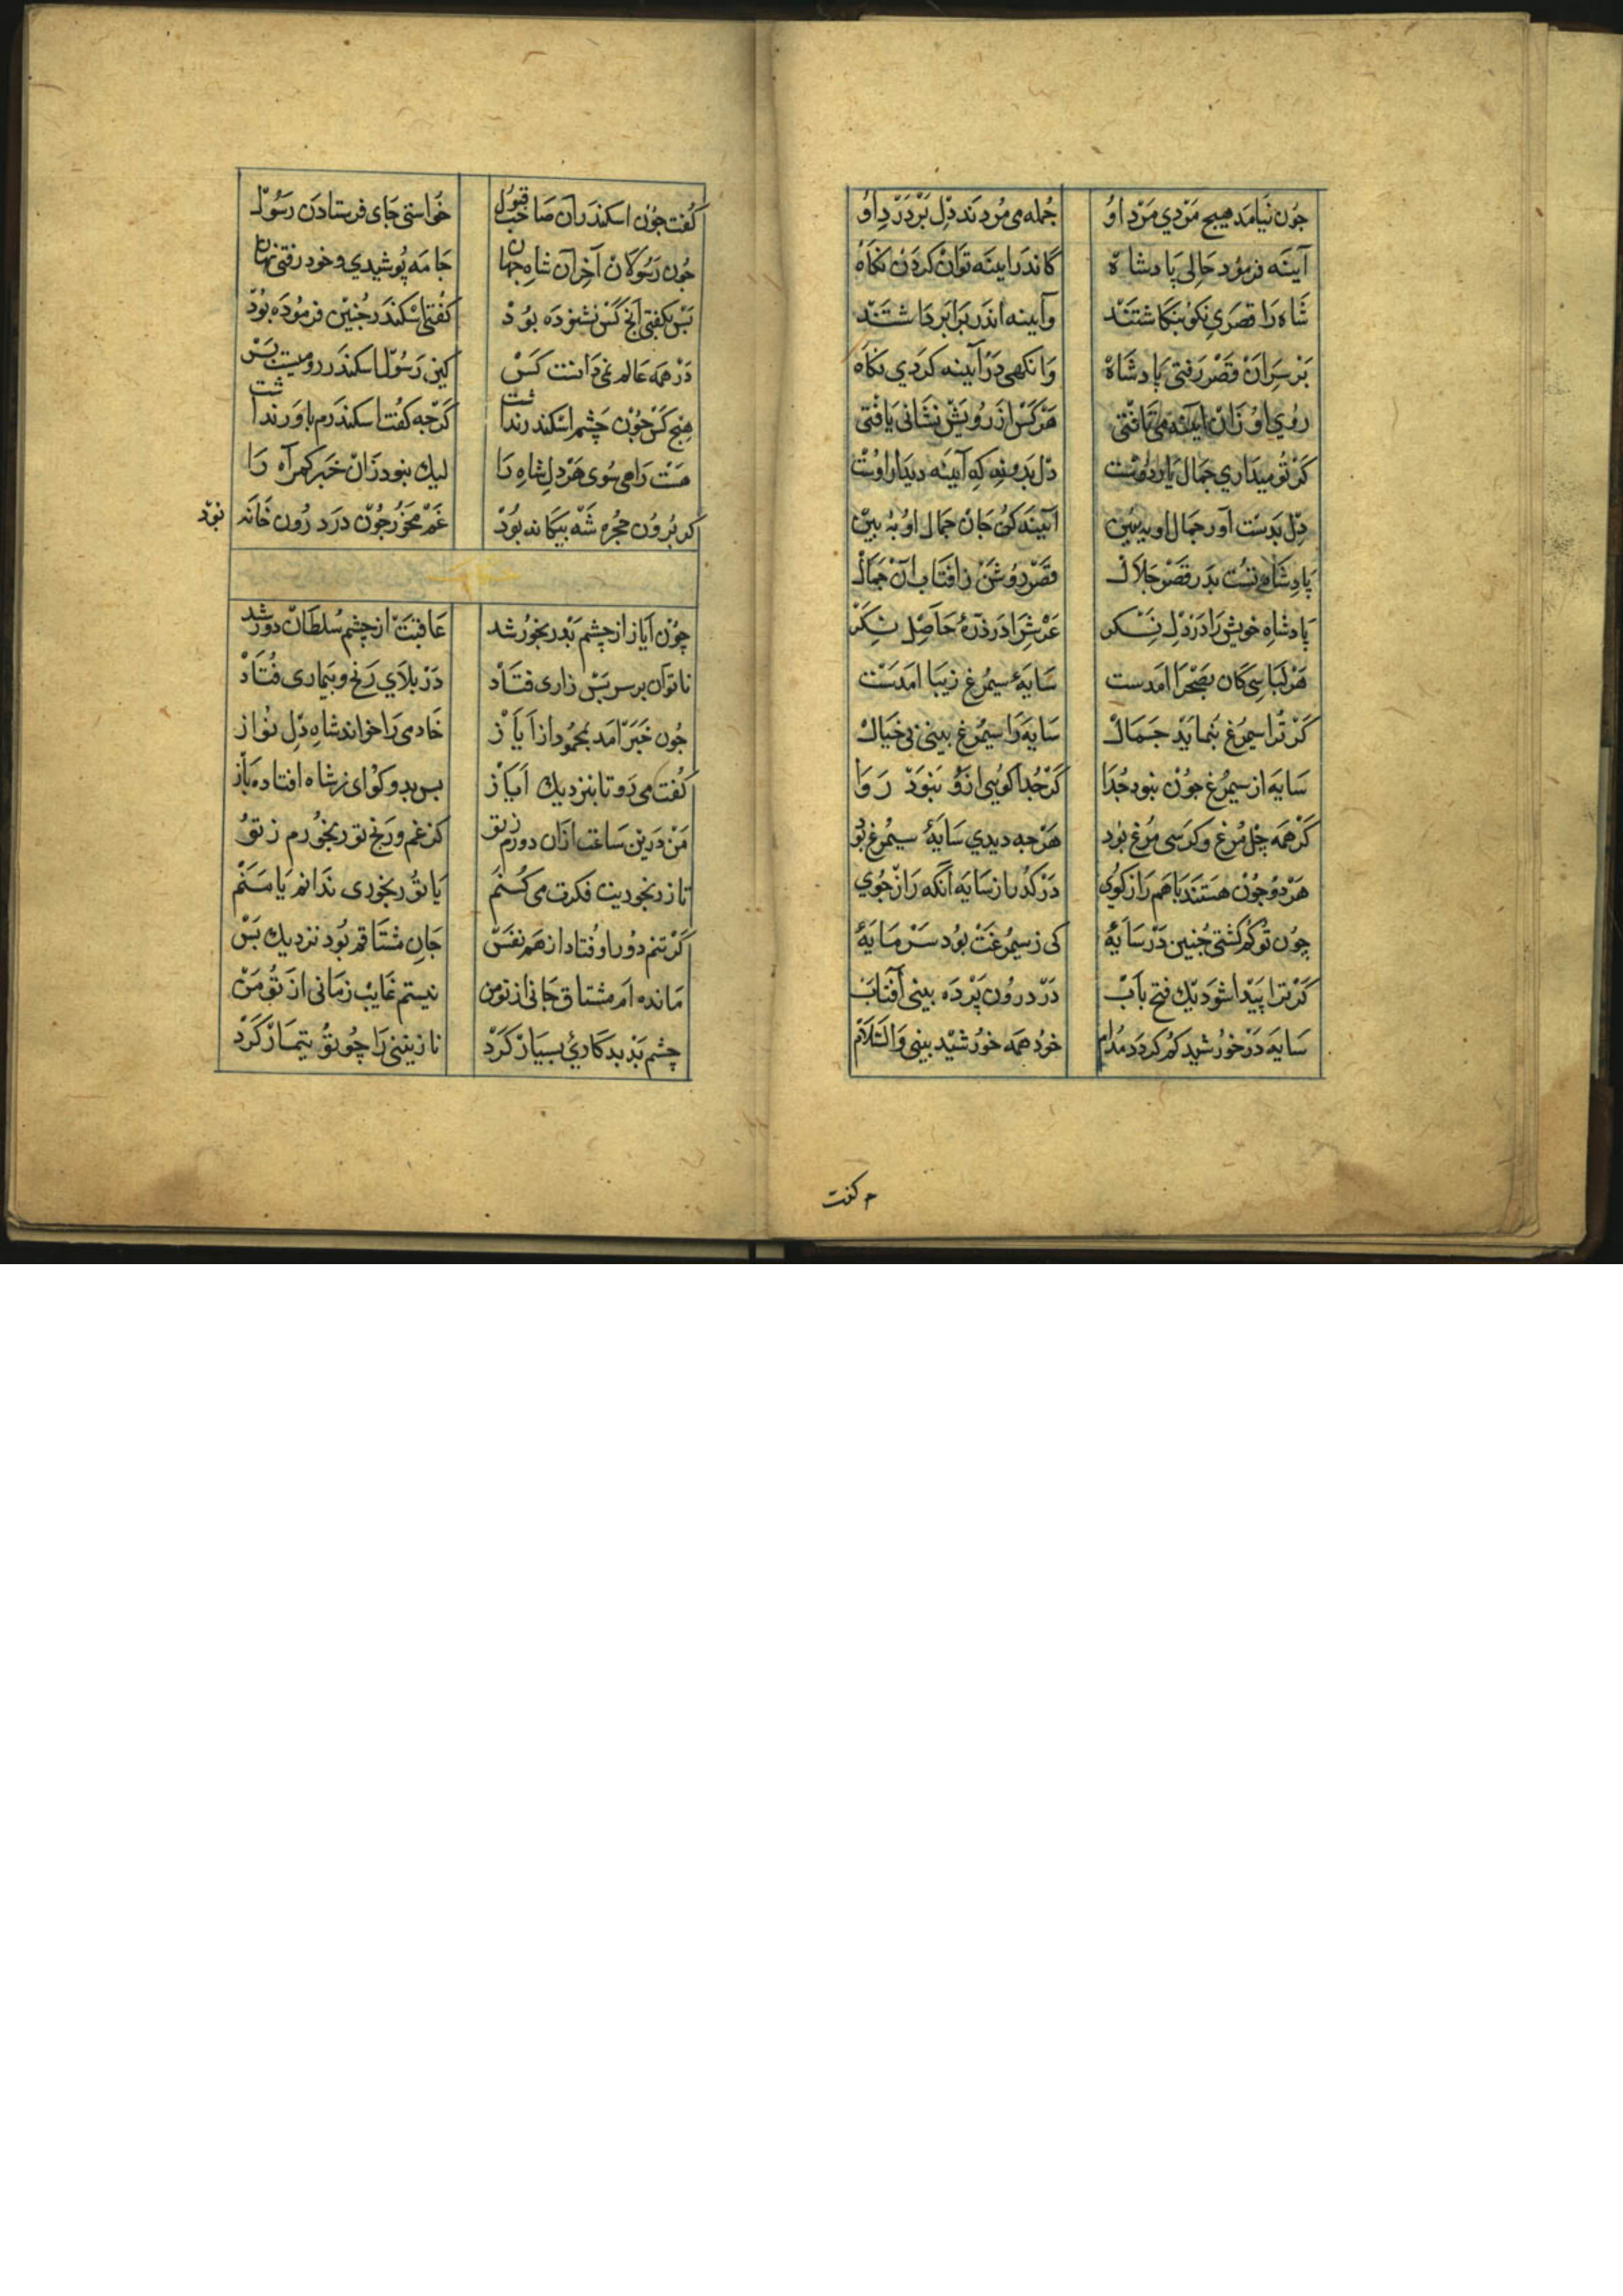 جون نیامد هیچ مردی مرد او جمله می مردند دل بر درد او
آینه فرمود حالی پادشاه کاندر آینه توان کردن نکاه
شاه را قصری نکو بنکاشتند و آینه اندر برابر داشتند
بر سر آن قصر رفتی پادشاه وانکهی در آینه کردی نکاه
روی او زان آینه می تافتی هر کس از رویش نشانی یافتی
کر تو میداری جمال یار دوست دل بدو نه که آینه دیدار اوست
دل بدست آور جمال او ببین آینه کن جان جمال او ببین
پادشاه تست بدر قصر جلال قصر روشن ز افتاب آن جمال
پادشاه خویش را در دل نکر عرش را در ذره حاصل نکر
هر لباسی کان بصحرا امدست سایهٔ سیمرغ زیبا امدست
کر ترا سیمرغ بنماید جمال سایه را سیمرغ بینی بی خیال
سایه از سیمرغ جون نبود جدا کر جدا کویی ازو نبود روا
کر همه چل مرغ و کر سی مرغ بود هرجه دیدی سایهٔ سیمرغ بود
هر دو جون هستند باهم راز کوی در کذر از سایه آنکه راز جوی
چون تو کم کشتی جنین در سایهٔ کی ز سیمرغت بود سرمایهٔ
کر ترا پیدا شود یک فتح باب در درون پرده بینی آفتاب
سایه در خورشید کم کردد مدام خود همه خورشید بینی والسلام
کفت
کفت جون اسکندر آن صاحب قبول خواستی جای فرستادن رسول
جون رسولان آخر آن شاه جهان جامه پوشیدی و خود رفتی نهان
بس بکفتی آنج کس نشنوده بود کفتی اسکندر جنین فرموده بود
در همه عالم نمی دانست کس کین رسول اسکندر رومیست بس
هیج کس جون چشم اسکندر نداشت کرجه کفت اسکندرم باور نداشت
هست راهی سوی هر دل شاه را لیک نبود زان خبر کمراه را
کر برون حجره شه بیکانه بود غم مخور جون در درون خانه بود
چون آیاز از چشم بد رنجور شد عاقبت از چشم سلطان دور شد
ناتوان بر سر بس زاری فتاد در بلای رنج و بیماری فتاد
جون خبر امد بمحمود از آیاز خادمی را خواند شاه دل نواز
کفت می رو تا بنزدیک ایاز بس بدو کو ای ز شاه افتاده باز
من درین ساعت ازان دورم ز تو کز غم و رنج تو رنجورم ز تو
تا ز رنجوریت فکرت می کنم یا تو رنجوری ندانم یا منم
کر تنم دور اوفتاد از هم نفس جان مشتاقم بود نزدیک بس
مانده ام مشتاق جانی از تو من نیستم غایب زمانی از تو من
چشم بد بد کاری بسیار کرد نازنینی را چو تو بیمار کرد